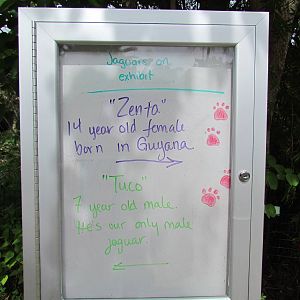 Jaguars on
exhibit
"Zenta"
14 year old female
born in Guyana
"Tuco"
7 year old male.
He's our only male
jaguar.